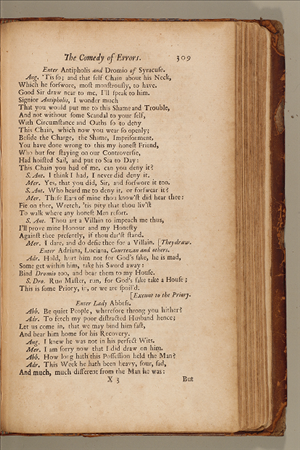 The Comedy of Errors. 309
Enter Antipholis and Dromio of Syracuse.
Ang. 'Tis so; and that self Chain about his Neck,
Which he forswore, most monstrously, to have.
Good Sir draw near to me, I'll speak to him.
Signior Antipholis, I wonder much
That you would put me to this Shame and Trouble,
And not without some Scandal to your self,
With Circumstance and Oaths so to deny
This Chain, which now you wear so openly;
Beside the Charge, the Shame, Imprisonment,
You have done wrong to this my honest Friend,
Who but for staying on our Controversie,
Had hoisted Sail, and put to Sea to Day:
This Chain you had of me, can you deny it?
S. Ant. I think I had, I never did deny it.
Mer. Yes, that you did, Sir, and forswore it too.
S. Ant. Who heard me to deny it, or forswear it?
Mer. These Ears of mine thou know'st did hear thee:
Fie on thee, Wretch, 'tis pity that thou liv'st
To walk where any honest Men resort.
S. Ant. Thou art a Villain to impeach me thus,
I'll prove mine Honour and my Honesty
Against thee presently, if thou dar'st stand.
Mer. I dare, and do defie thee for a Villain. [They draw.
Enter Adriana, Luciana, Courtezan and others.
Adr. Hold, hurt him not for God's sake, he is mad,
Some get within him, take his Sword away:
Bind Dromio too, and bear them to my House.
S. Dro. Run Master, run, for God's sake take a House;
This is some Priory, in, or we are spoil'd.
[Exeunt to the Priory.
Enter Lady Abbess.
Abb. Be quiet People, wherefore throng you hither?
Adr. To fetch my poor distracted Husband hence;
Let us come in, that we may bind him fast,
And bear him home for his Recovery.
Ang. I knew he was not in his perfect Wits.
Mer. I am sorry now that I did draw on him.
Abb. How long hath this Possession held the Man?
Adr. This Week he hath been heavy, sour, sad,
And much, much different from the Man he was:
X 3 But